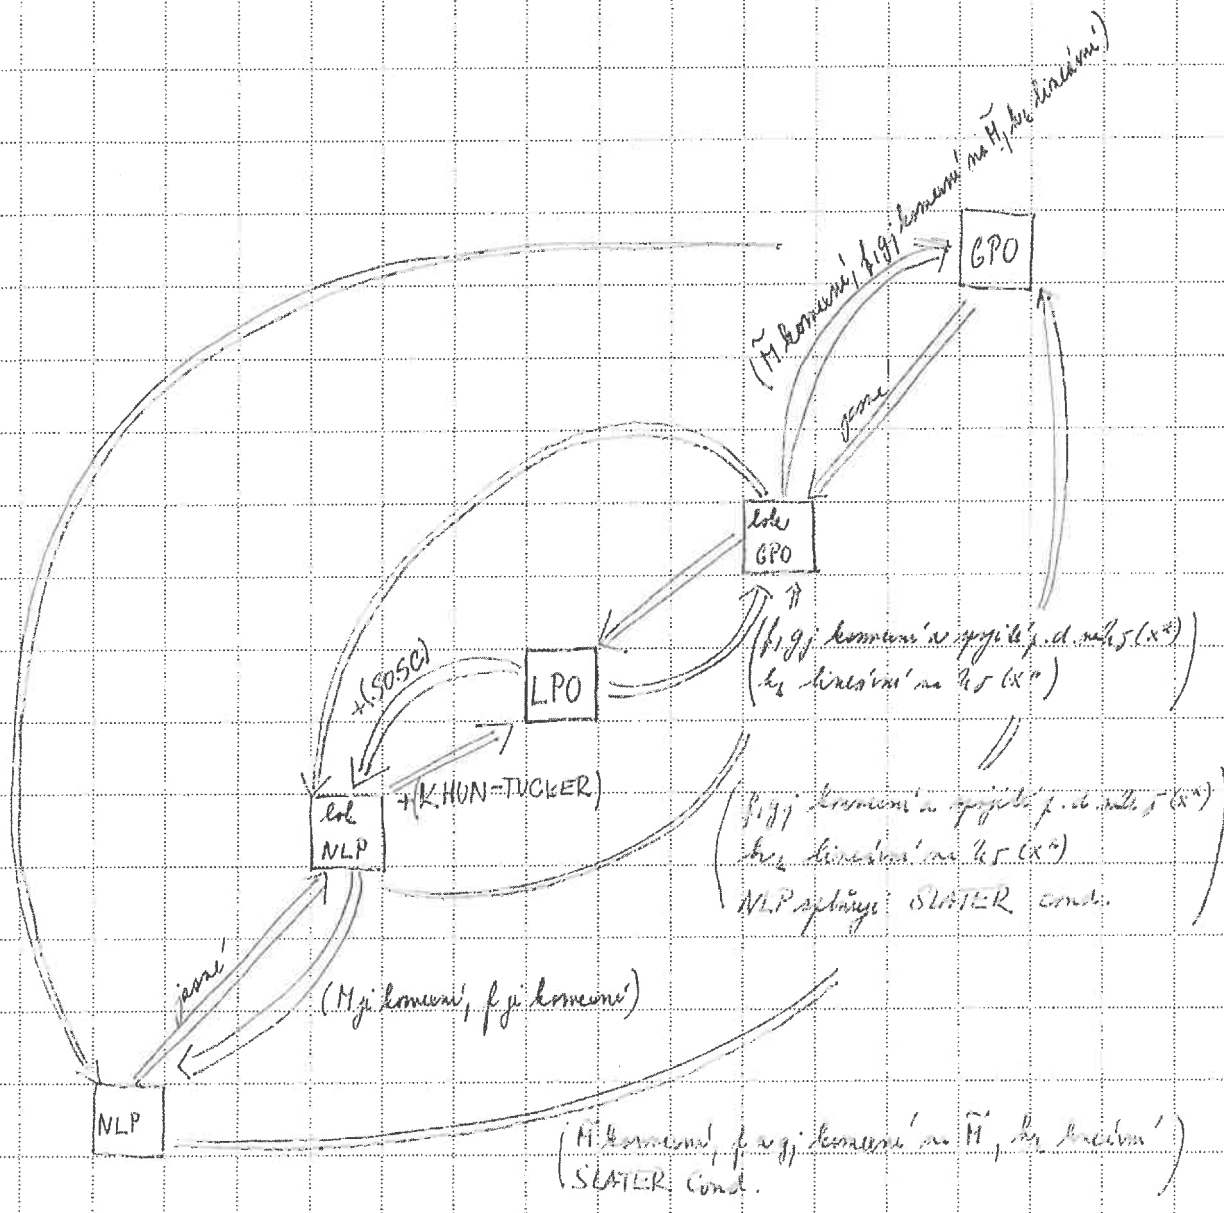 (M̃ konvexní, f, gj konvexní na M̃, hk lineární)
GPO
jasné
lok
GPO
(f, gj konvexní a spojité p. d. na Uδ(x*)
hk lineární na Uδ(x*))
+(SOSC)
LPO
+(KHUN-TUCKER)
lok
NLP
(f, gj konvexní a spojité p. d. na Uδ(x*)
hk lineární na Uδ(x*)
NLP splňuje SLATER cond.)
jasné
(M je konvexní, f je konvexní)
NLP
(M̃ konvexní, f a gj konvexní na M̃, hk lineární
SLATER Cond.)